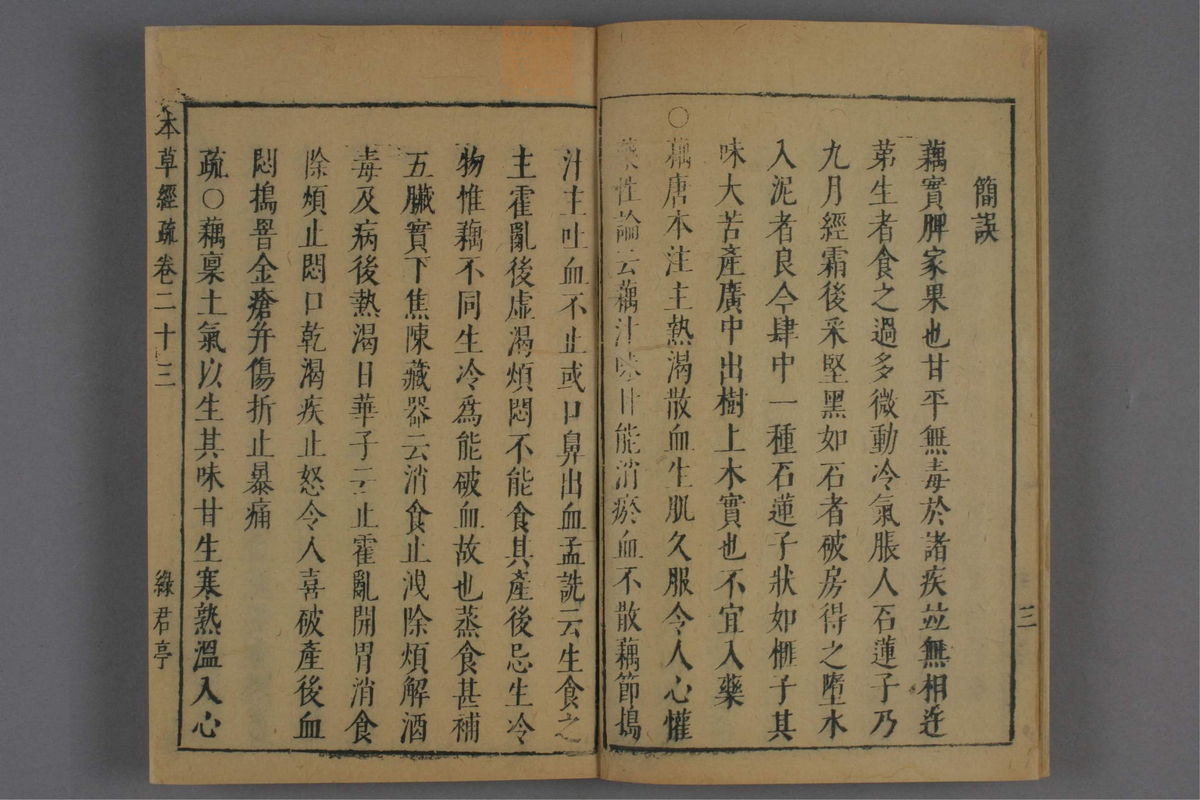 三
簡誤
藕實脾家果也甘平無毒於諸疾並無相迕
第生者食之過多微動冷氣脹人石蓮子乃
九月經霜後采堅黑如石者破房得之墮水
入泥者良今肆中一種石蓮子狀如榧子其
味大苦產廣中出樹上木實也不宜入藥
○藕唐本注主熱渴散血生肌久服令人心懽
藥性論云藕汁味甘能消瘀血不散藕節搗
汁主吐血不止或口鼻出血孟詵云生食之
主霍亂後虛渴煩悶不能食其產後忌生冷
物惟藕不同生冷爲能破血故也蒸食甚補
五臟實下焦陳藏器云消食止洩除煩解酒
毒及病後熱渴日華子云止霍亂開胃消食
除煩止悶口乾渴疾止怒令人喜破產後血
悶搗罯金瘡并傷折止暴痛
疏○藕稟土氣以生其味甘生寒熟溫入心
本草經疏卷二十三 綠君亭